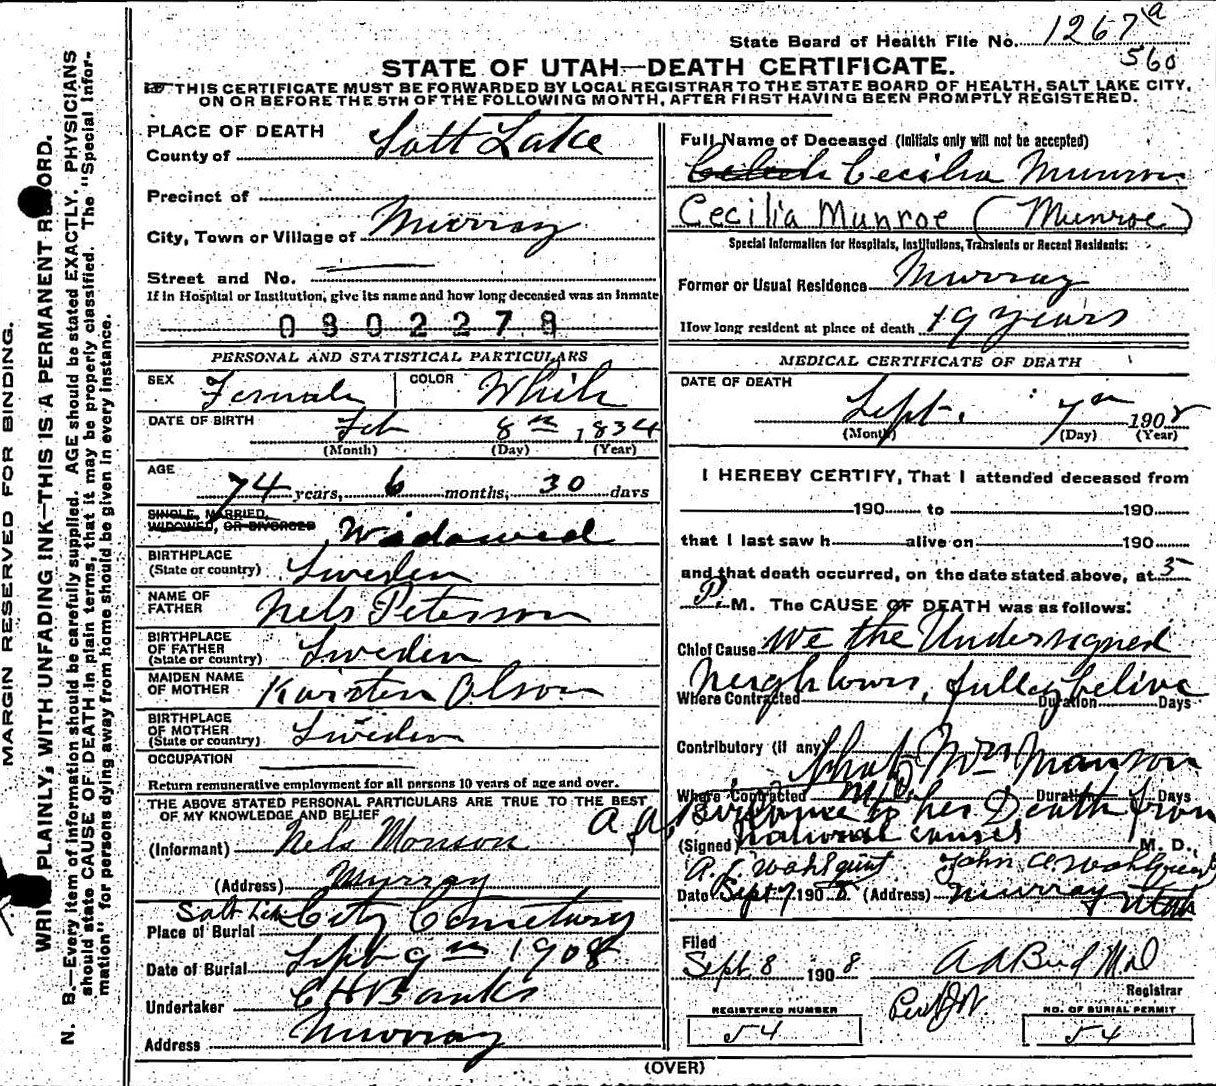 1267 a
State Board of Health File No.
560
STATE OF UTAH—DEATH CERTIFICATE.
THIS CERTIFICATE MUST BE FORWARDED BY LOCAL REGISTRAR TO THE STATE BOARD OF HEALTH, SALT LAKE CITY,
ON OR BEFORE THE 5TH OF THE FOLLOWING MONTH, AFTER FIRST HAVING BEEN PROMPTLY REGISTERED.
MARGIN RESERVED FOR BINDING.
WRITE PLAINLY, WITH UNFADING INK—THIS IS A PERMANENT RECORD.
N. B.—Every item of information should be carefully supplied. AGE should be stated EXACTLY. PHYSICIANS
should state CAUSE OF DEATH in plain terms, that it may be properly classified. The "Special Infor-
mation" for persons dying away from home should be given in every instance.
PLACE OF DEATH
County of Salt Lake
Precinct of
City, Town or Village of Murray
Street and No.
If in Hospital or Institution, give its name and how long deceased was an inmate
0802278
PERSONAL AND STATISTICAL PARTICULARS
SEX Female COLOR White
DATE OF BIRTH Feb 8th 1834
(Month) (Day) (Year)
AGE
74 years, 6 months, 30 days
SINGLE, MARRIED,
WIDOWED, OR DIVORCED Widowed
BIRTHPLACE
(State or country) Sweden
NAME OF
FATHER Nels Peterson
BIRTHPLACE
OF FATHER
(State or country) Sweden
MAIDEN NAME
OF MOTHER Kairsten Olson
BIRTHPLACE
OF MOTHER
(State or country) Sweden
OCCUPATION
Return remunerative employment for all persons 10 years of age and over.
THE ABOVE STATED PERSONAL PARTICULARS ARE TRUE TO THE BEST
OF MY KNOWLEDGE AND BELIEF
(Informant) Nels Monson
(Address) Murray
Salt Lake City Cemetery
Place of Burial
Date of Burial Sept 9th 1908
Undertaker C H Banks
Address Murray
Full Name of Deceased (Initials only will not be accepted)
Cecilia Munroe
Cecilia Munroe (Munroe)
Special Information for Hospitals, Institutions, Transients or Recent Residents:
Former or Usual Residence Murray
How long resident at place of death 19 years
MEDICAL CERTIFICATE OF DEATH
DATE OF DEATH
Sept. 7th 1908
(Month) (Day) (Year)
I HEREBY CERTIFY, That I attended deceased from
190 to 190
that I last saw h alive on 190
and that death occurred, on the date stated above, at 5
P. M. The CAUSE OF DEATH was as follows:
Chief Cause We the Undersigned
Neighbours, fulley belive
Where Contracted Duration Days
Contributory (if any) that Mrs Monson
Where Contracted Duration Days
her Death from
(Signed) national causes M. D.,
A. J. Wahlquist John A. Wahlquist
Date Sept 7 1908 (Address) Murray Utah
Filed
Sept 8 1908 A A Bird Md
Registrar
REGISTERED NUMBER
54
NO. OF BURIAL PERMIT
54
(OVER)